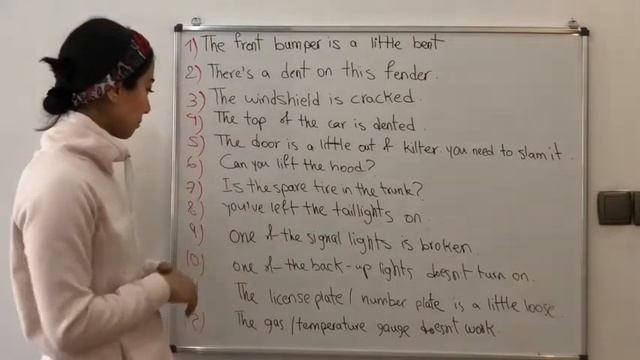 1) The front bumper is a little bent
2) There's a dent on this fender.
3) The windshield is cracked.
4) The top of the car is dented.
5) The door is a little out of kilter. you need to slam it.
6) Can you lift the hood?
7) Is the spare tire in the trunk?
8) you've left the taillights on.
9) one of the signal lights is broken.
10) one of the back-up lights doesn't turn on.
The license plate / number plate is a little loose.
The gas / temperature gauge doesn't work.